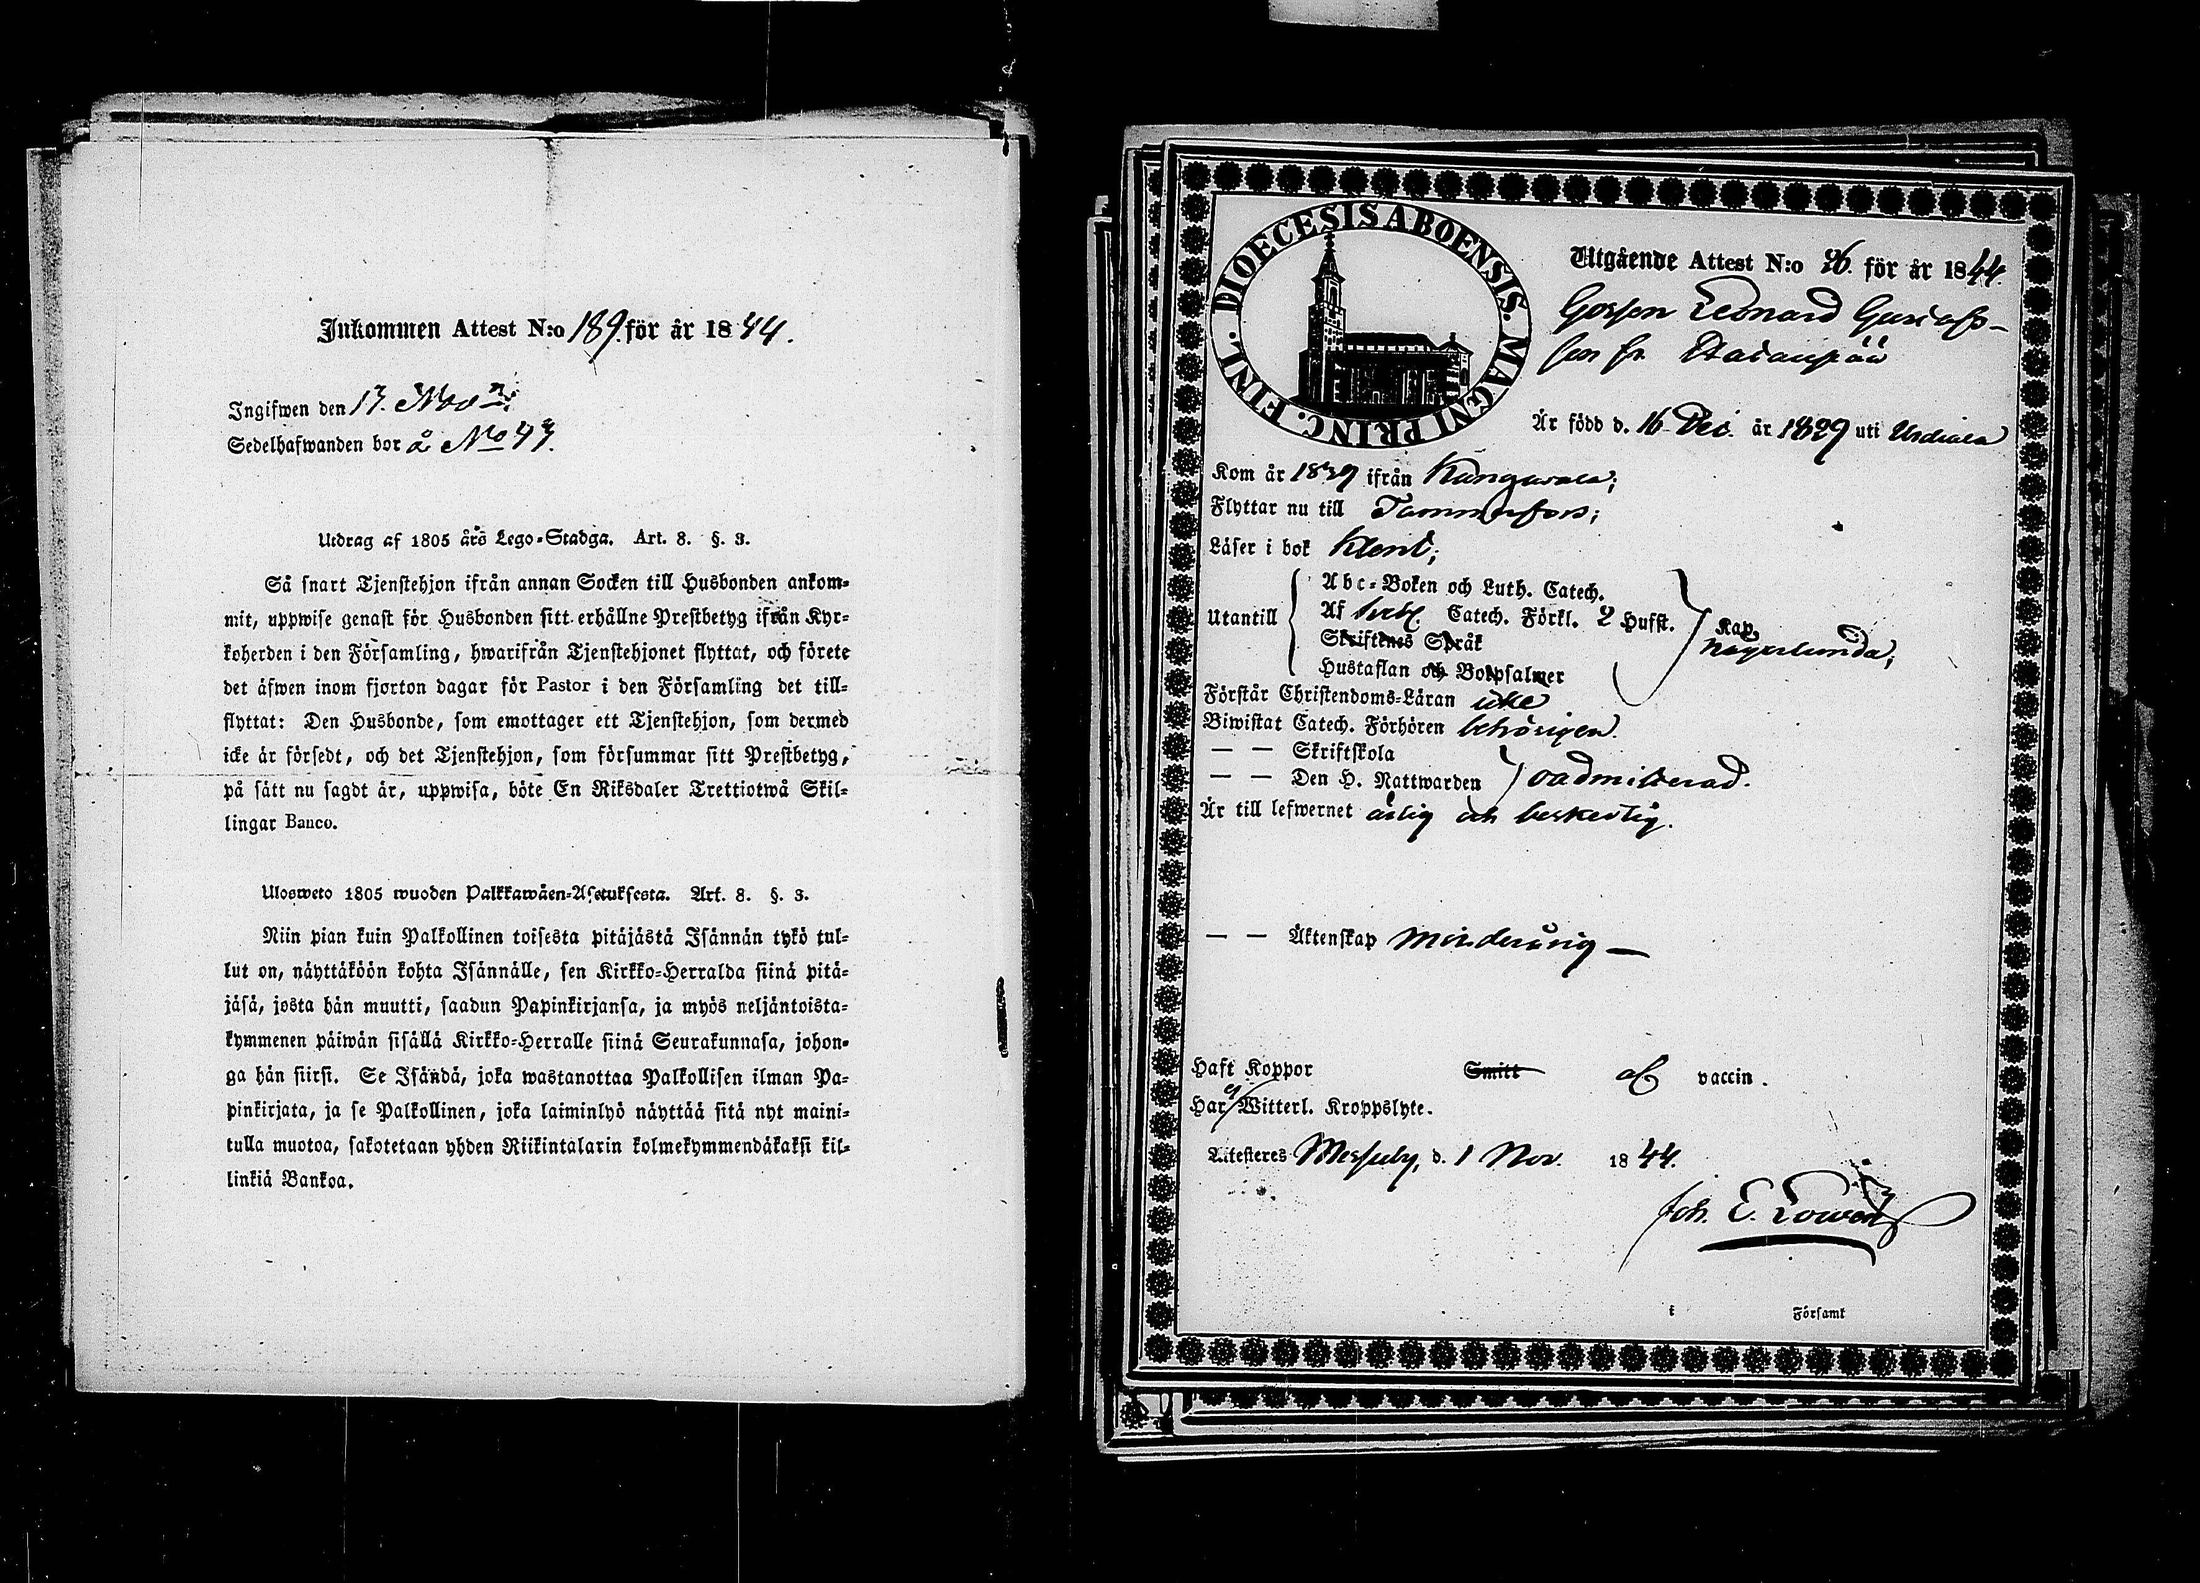 Inkommen Attest N:o 189. för år 1844.
Ingifwen den 17. Nov
Sedelhafwanden bor å No 47.
Utdrag af 1805 års Lego-Stadga. Art. 8. §. 3.
Så snart Tjenstehjon ifrån annan Socken till Husbonden ankom-
mit, uppwise genast för Husbonden sitt erhållne Prestbetyg ifrån Kyr-
koherden i den Församling, hwarifrån Tjenstehjonet flyttat, och förete
det äfwen inom fjorton dagar för Pastor i den Församling det till-
flyttat: Den Husbonde, som emottager ett Tjenstehjon, som dermed
icke är försedt, och det Tjenstehjon, som försummar sitt Prestbetyg,
på sätt nu sagdt är, uppwisa, böte En Riksdaler Trettiotwå Skil-
lingar Banco.
Ulosweto 1805 wuoden Palkkawäen-Asetuksesta. Art. 8. §. 3.
Niin pian kuin Palkollinen toisesta pitäjästä Isännän tykö tul-
lut on, näyttäköön kohta Isännälle, sen Kirkko-Herralda siinä pitä-
jäsä, josta hän muutti, saadun Papinkirjansa, ja myös neljäntoista-
kymmenen päiwän sisällä Kirkko-Herralle siinä Seurakunnasa, johon-
ga hän siirsi. Se Isändä, joka wastanottaa Palkollisen ilman Pa-
pinkirjata, ja se Palkollinen, joka laiminlyö näyttää sitä nyt maini-
tulla muotoa, sakotetaan yhden Riikintalarin kolmekymmendäkaksi kil-
linkiä Bankoa.
DIOECESIS ABOENSIS. MAGNI PRINC. FINL.
Utgående Attest N:o 96. för år 1844.
Gossen Leonard Gustafs-
son fr.
Är född d. 16 Dec. år 1829 uti Urdiala
Kom år 1839 ifrån Kangasala;
Flyttar nu till Tammerfors;
Läser i bok klent;
Utantill
Abc-Boken och Luth. Catech.
Af Catech. Förkl. 2 Hufst.
Skriftenes Språk
Hustaflan och Botpsalmer
någorlunda;
Förstår Christendoms-Läran icke
Biwistat Catech. Förhören behörigen.
— — Skriftskola
— — Den H. Nattwarden oadmitterad.
Är till lefwernet ärlig och beskedlig.
— — Äktenskap minderårig —
Haft Koppor Smitt af vaccin.
Har ej Witterl. Kroppslyte.
Attesteres Messuby, d. 1 Nov. 1844.
Joh. E.
i Församl